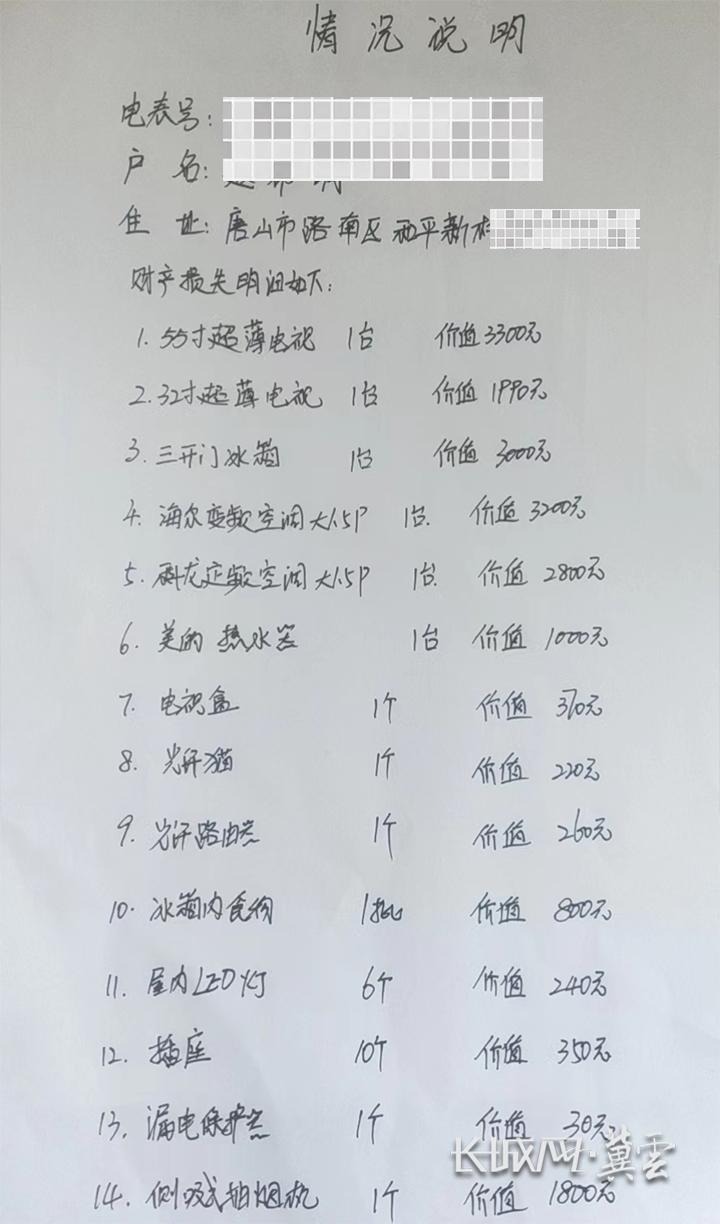 情况说明
电表号:
户 名:
住 址: 唐山市路南区 和平新村
财产损失明细如下:
1. 55寸超薄电视 1台 价值3300元
2. 32寸超薄电视 1台 价值1990元
3. 三开门冰箱 1台 价值 3000元
4. 海尔变频空调大1.5P 1台. 价值 3200元
5. 科龙定频空调大1.5P 1台 价值 2800元
6. 美的 热水器 1台 价值 1000元
7. 电视盒 1个 价值 370元
8. 光纤猫 1个 价值 220元
9. 光纤路由器 1个 价值 260元
10. 冰箱内食物 1批 价值 800元
11. 屋内LED灯 6个 价值 240元
12. 插座 10个 价值 350元
13. 漏电保护器 1个 价值 30元
14. 侧吸式抽烟机 1个 价值 1800元
冀云